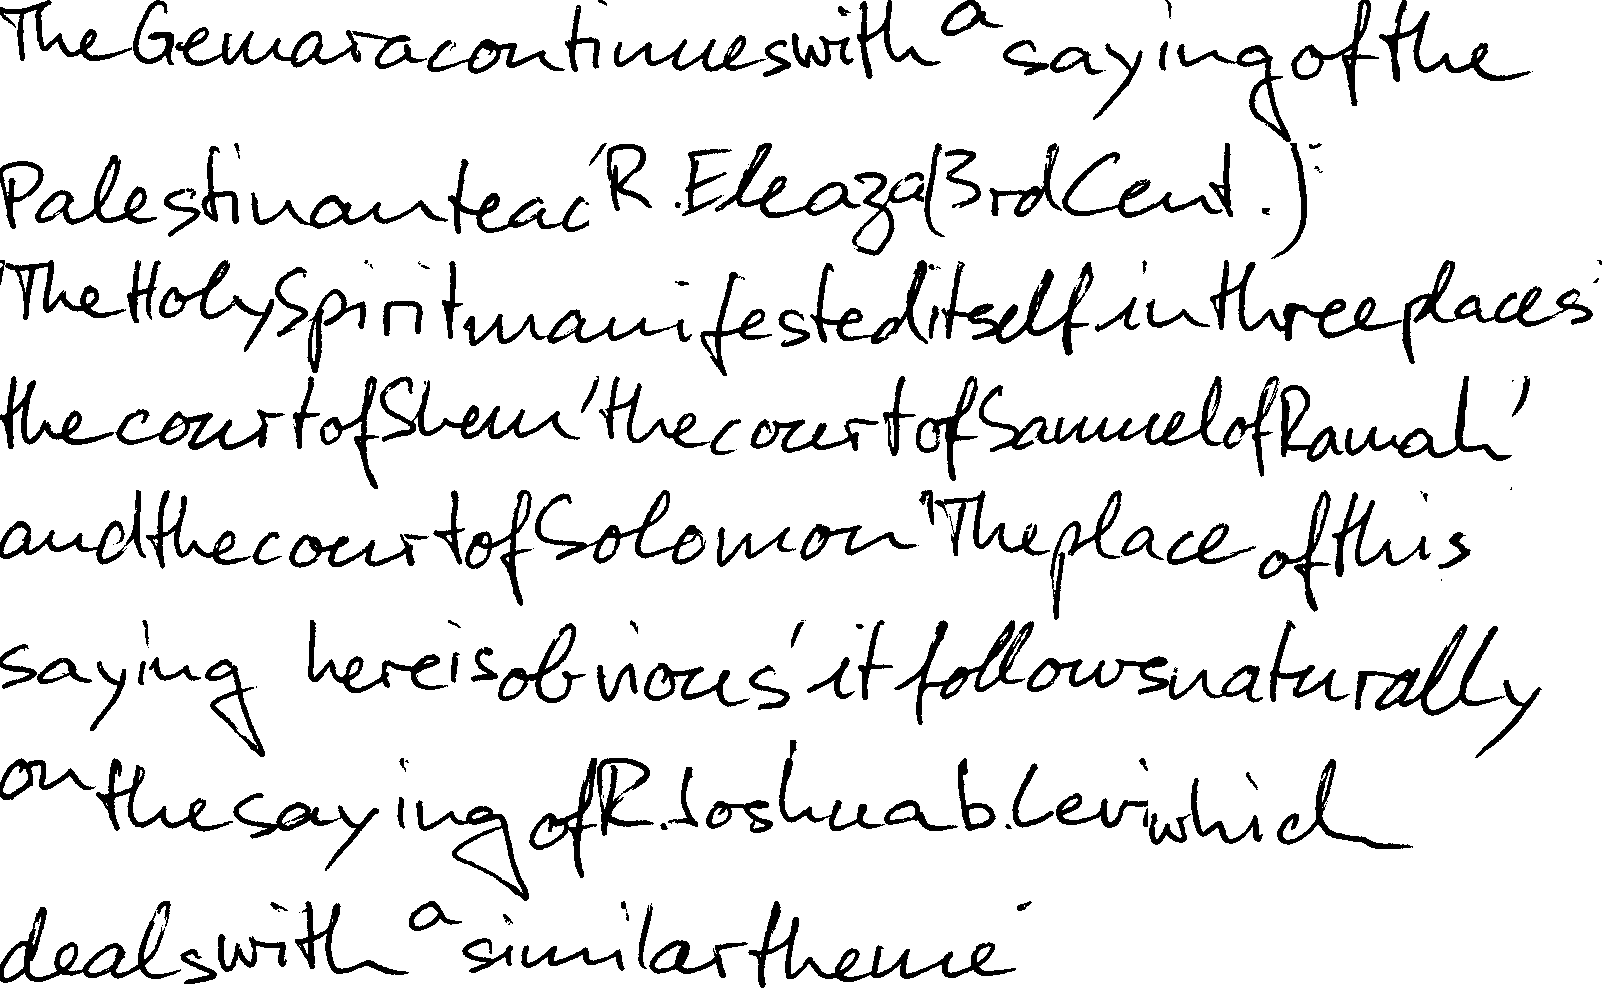 The Gemara continues with a saying of the
Palestinan teac' R. Eleaza (3rd Cent.):
'The Holy Spirit manifested itself in three places'
the court of Shem' the court of Samuel of Ramah'
and the court of Solomon' 'The place of this
saying here is obvious' it follows naturally
on the saying of R. Joshua b. Levi which
deals with a similar theme.